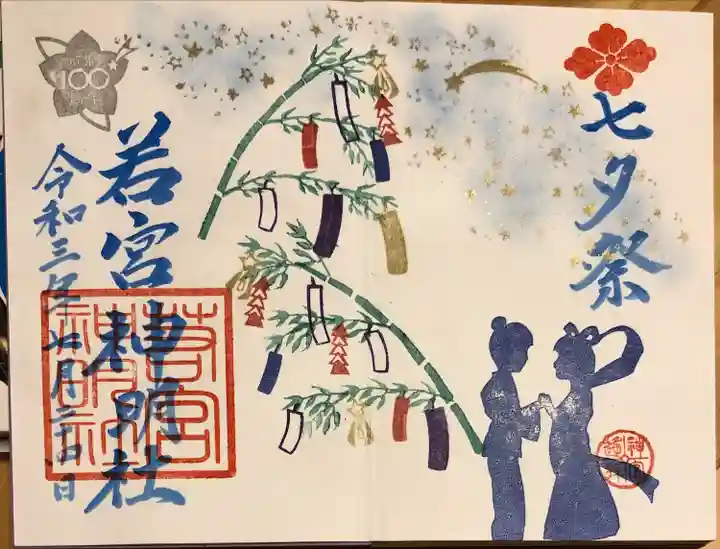 七夕祭
若宮神明社
令和三年七月二十四日
100
若宮
神明社